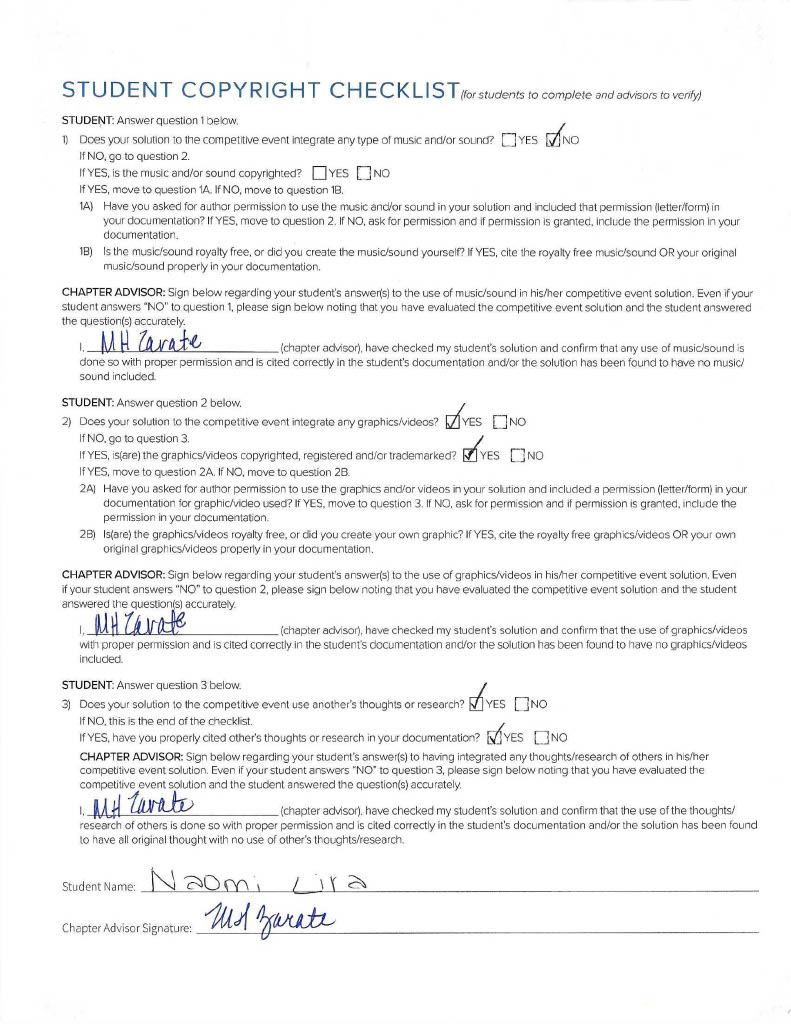 STUDENT COPYRIGHT CHECKLIST (for students to complete and advisors to verify)
STUDENT: Answer question 1 below.
1) Does your solution to the competitive event integrate any type of music and/or sound? YES NO
If NO, go to question 2.
If YES, is the music and/or sound copyrighted? YES NO
If YES, move to question 1A. If NO, move to question 1B.
1A) Have you asked for author permission to use the music and/or sound in your solution and included that permission (letter/form) in
your documentation? If YES, move to question 2. If NO, ask for permission and if permission is granted, include the permission in your
documentation.
1B) Is the music/sound royalty free, or did you create the music/sound yourself? If YES, cite the royalty free music/sound OR your original
music/sound properly in your documentation.
CHAPTER ADVISOR: Sign below regarding your student's answer(s) to the use of music/sound in his/her competitive event solution. Even if your
student answers "NO" to question 1, please sign below noting that you have evaluated the competitive event solution and the student answered
the question(s) accurately.
I, MH Zarate (chapter advisor), have checked my student's solution and confirm that any use of music/sound is
done so with proper permission and is cited correctly in the student's documentation and/or the solution has been found to have no music/
sound included.
STUDENT: Answer question 2 below.
2) Does your solution to the competitive event integrate any graphics/videos? YES NO
If NO, go to question 3.
If YES, is(are) the graphics/videos copyrighted, registered and/or trademarked? YES NO
If YES, move to question 2A. If NO, move to question 2B.
2A) Have you asked for author permission to use the graphics and/or videos in your solution and included a permission (letter/form) in your
documentation for graphic/video used? If YES, move to question 3. If NO, ask for permission and if permission is granted, include the
permission in your documentation.
2B) Is(are) the graphics/videos royalty free, or did you create your own graphic? If YES, cite the royalty free graphics/videos OR your own
original graphics/videos properly in your documentation.
CHAPTER ADVISOR: Sign below regarding your student's answer(s) to the use of graphics/videos in his/her competitive event solution. Even
if your student answers "NO" to question 2, please sign below noting that you have evaluated the competitive event solution and the student
answered the question(s) accurately.
I, MH Zarate (chapter advisor), have checked my student's solution and confirm that the use of graphics/videos
with proper permission and is cited correctly in the student's documentation and/or the solution has been found to have no graphics/videos
included.
STUDENT: Answer question 3 below.
3) Does your solution to the competitive event use another's thoughts or research? YES NO
If NO, this is the end of the checklist.
If YES, have you properly cited other's thoughts or research in your documentation? YES NO
CHAPTER ADVISOR: Sign below regarding your student's answer(s) to having integrated any thoughts/research of others in his/her
competitive event solution. Even if your student answers "NO" to question 3, please sign below noting that you have evaluated the
competitive event solution and the student answered the question(s) accurately.
I, MH Zarate (chapter advisor), have checked my student's solution and confirm that the use of the thoughts/
research of others is done so with proper permission and is cited correctly in the student's documentation and/or the solution has been found
to have all original thought with no use of other's thoughts/research.
Student Name: Naomi Lira
Chapter Advisor Signature: MH Zarate